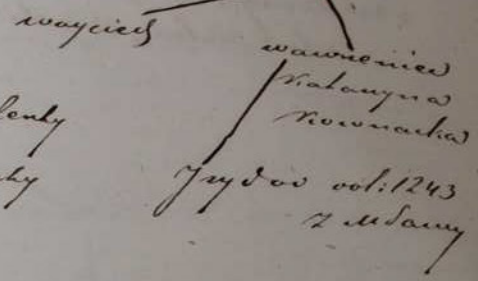 Woyciech
Wawrzeniec
Katarzyna
Kownacka
lenty
Jzydor vol: 1243
z Mławy